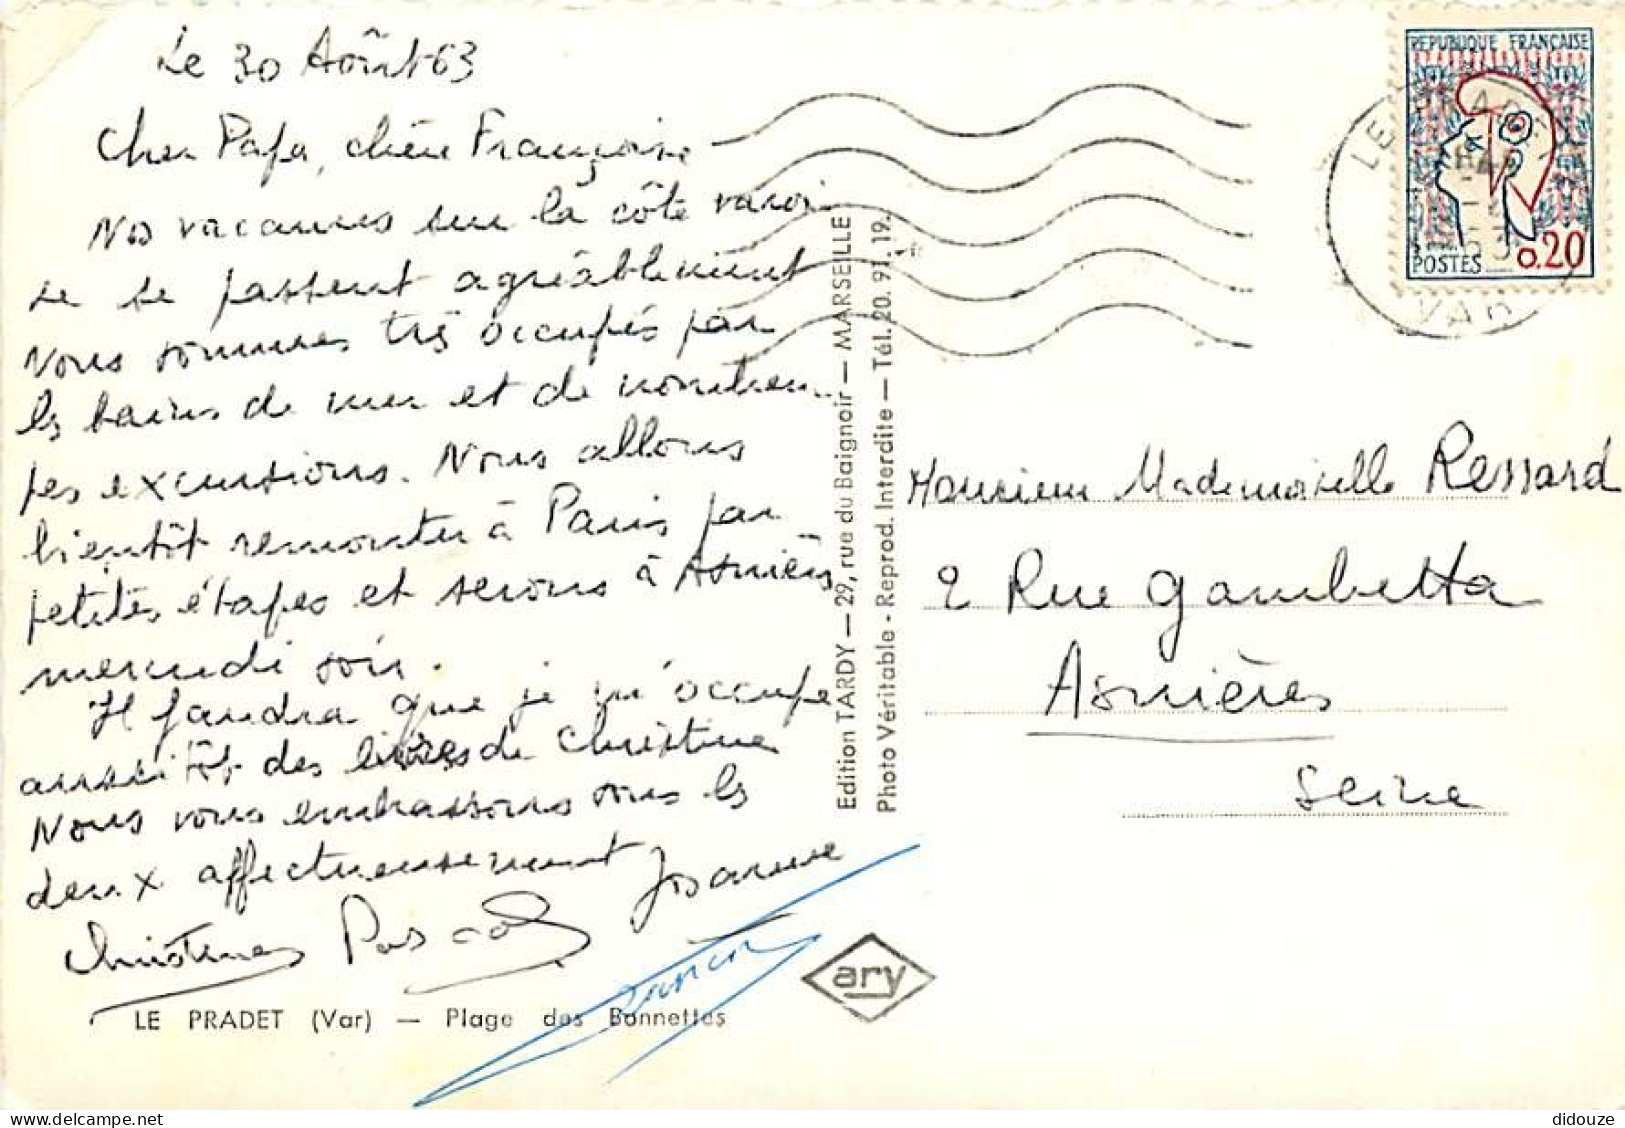 Le 30 Août 63
Cher Papa, chère Françoise
Nos vacances sur la côte varoi-
se se passent agréablement
Nous sommes très occupés par
les bains de mer et de nombreu-
ses excursions. Nous allons
bientôt remonter à Paris par
petites étapes et serons à Asnières
mercredi soir.
Il faudra que je m'occupe
aussitôt des livres de Christine
Nous vous embrassons tous les
deux affectueusement
Christine Pascal
LE PRADET (Var) — Plage des Bonnettes
Edition TARDY — 29, rue du Baignoir — MARSEILLE
Photo Véritable - Reprod. Interdite — Tél. 20. 91. 19.
ary
REPUBLIQUE FRANÇAISE
POSTES 0.20
VAR
Monsieur Mademoiselle Ressard
2 Rue Gambetta
Asnières
Seine
didouze